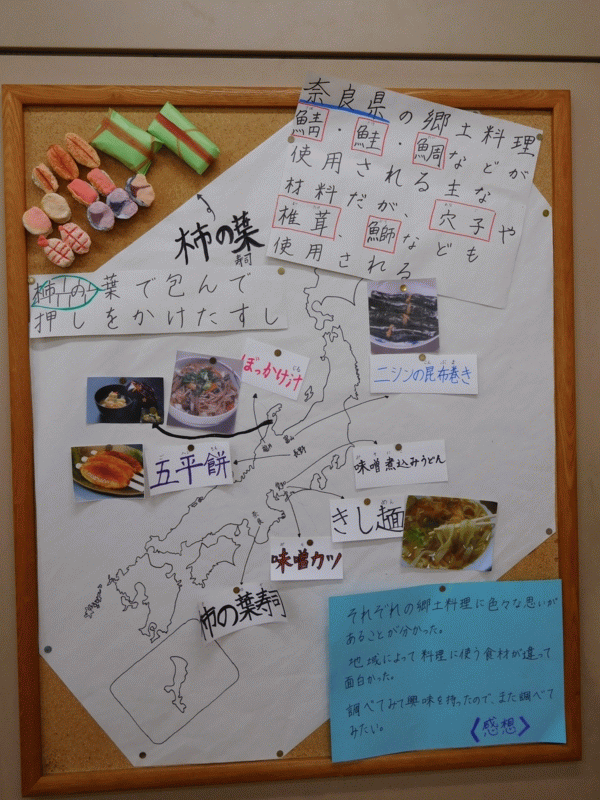 奈良県の郷土料理
鯖・鮭・鯛などが
使用される主な
材料だが、
椎茸、鰤、穴子や
なども
使用される
柿の葉
寿司
柿の葉で包んで
押しをかけたすし
ぼっかけ汁
じる
ニシンの昆布巻き
こぶま
味噌煮込みうどん
五平餅
きし麺
めん
味噌カツ
柿の葉寿司
それぞれの郷土料理に色々な思いが
あることが分かった。
地域によって料理に使う食材が違って
面白かった。
調べてみて興味を持ったので、また調べて
みたい。
〈感想〉